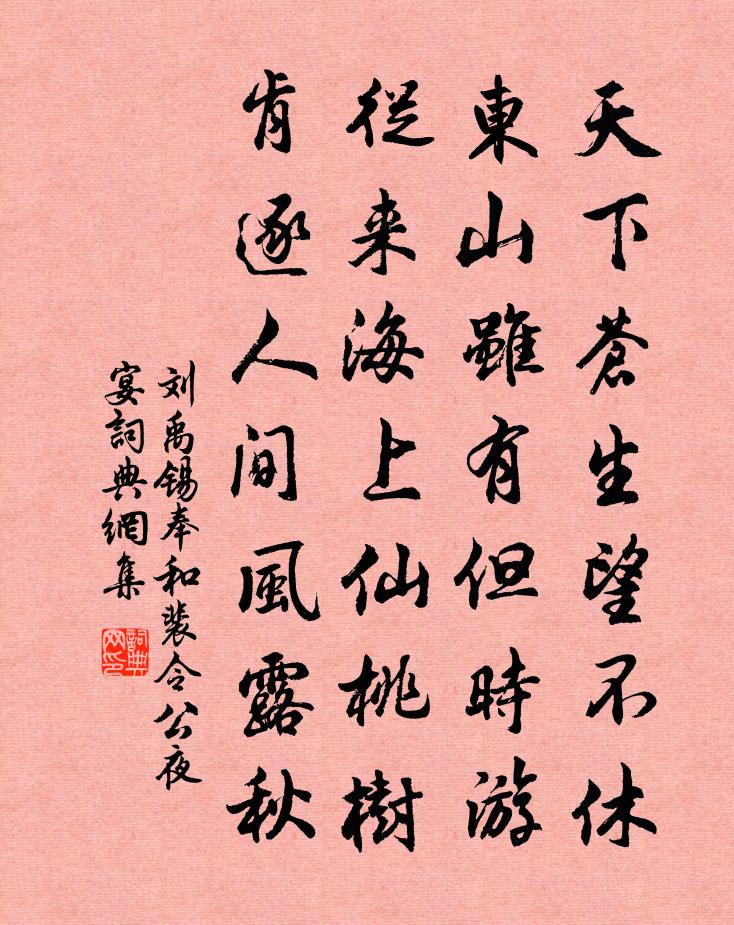 天下蒼生望不休
東山雖有但時游
從来海上仙桃樹
肯逐人间風露秋
刘禹锡奉和裴令公夜
宴詞典網集
詞典
网印